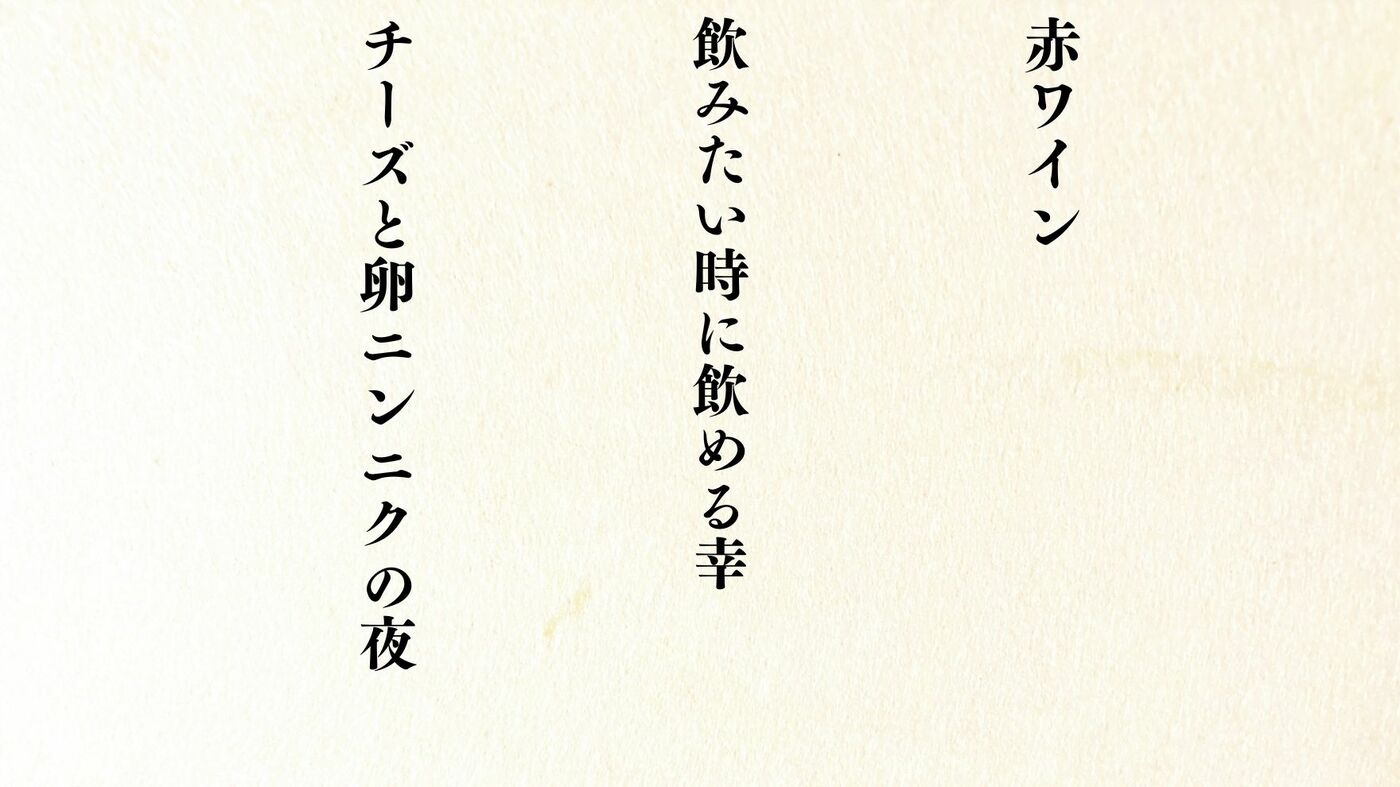 赤ワイン
飲みたい時に飲める幸
チーズと卵ニンニクの夜